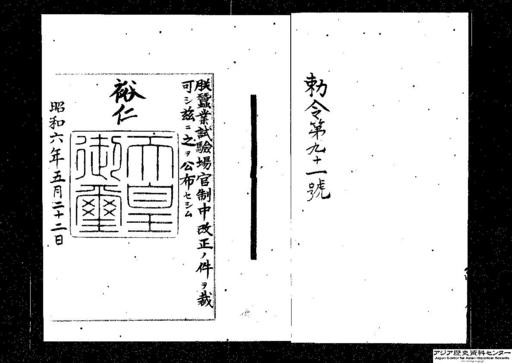 勅令第九十一號
朕蠶業試驗場官制中改正ノ件ヲ裁
可シ茲ニ之ヲ公布セシム
裕仁
天皇
御璽
昭和六年五月二十二日
アジア歴史資料センター
Japan Center for Asian Historical Records